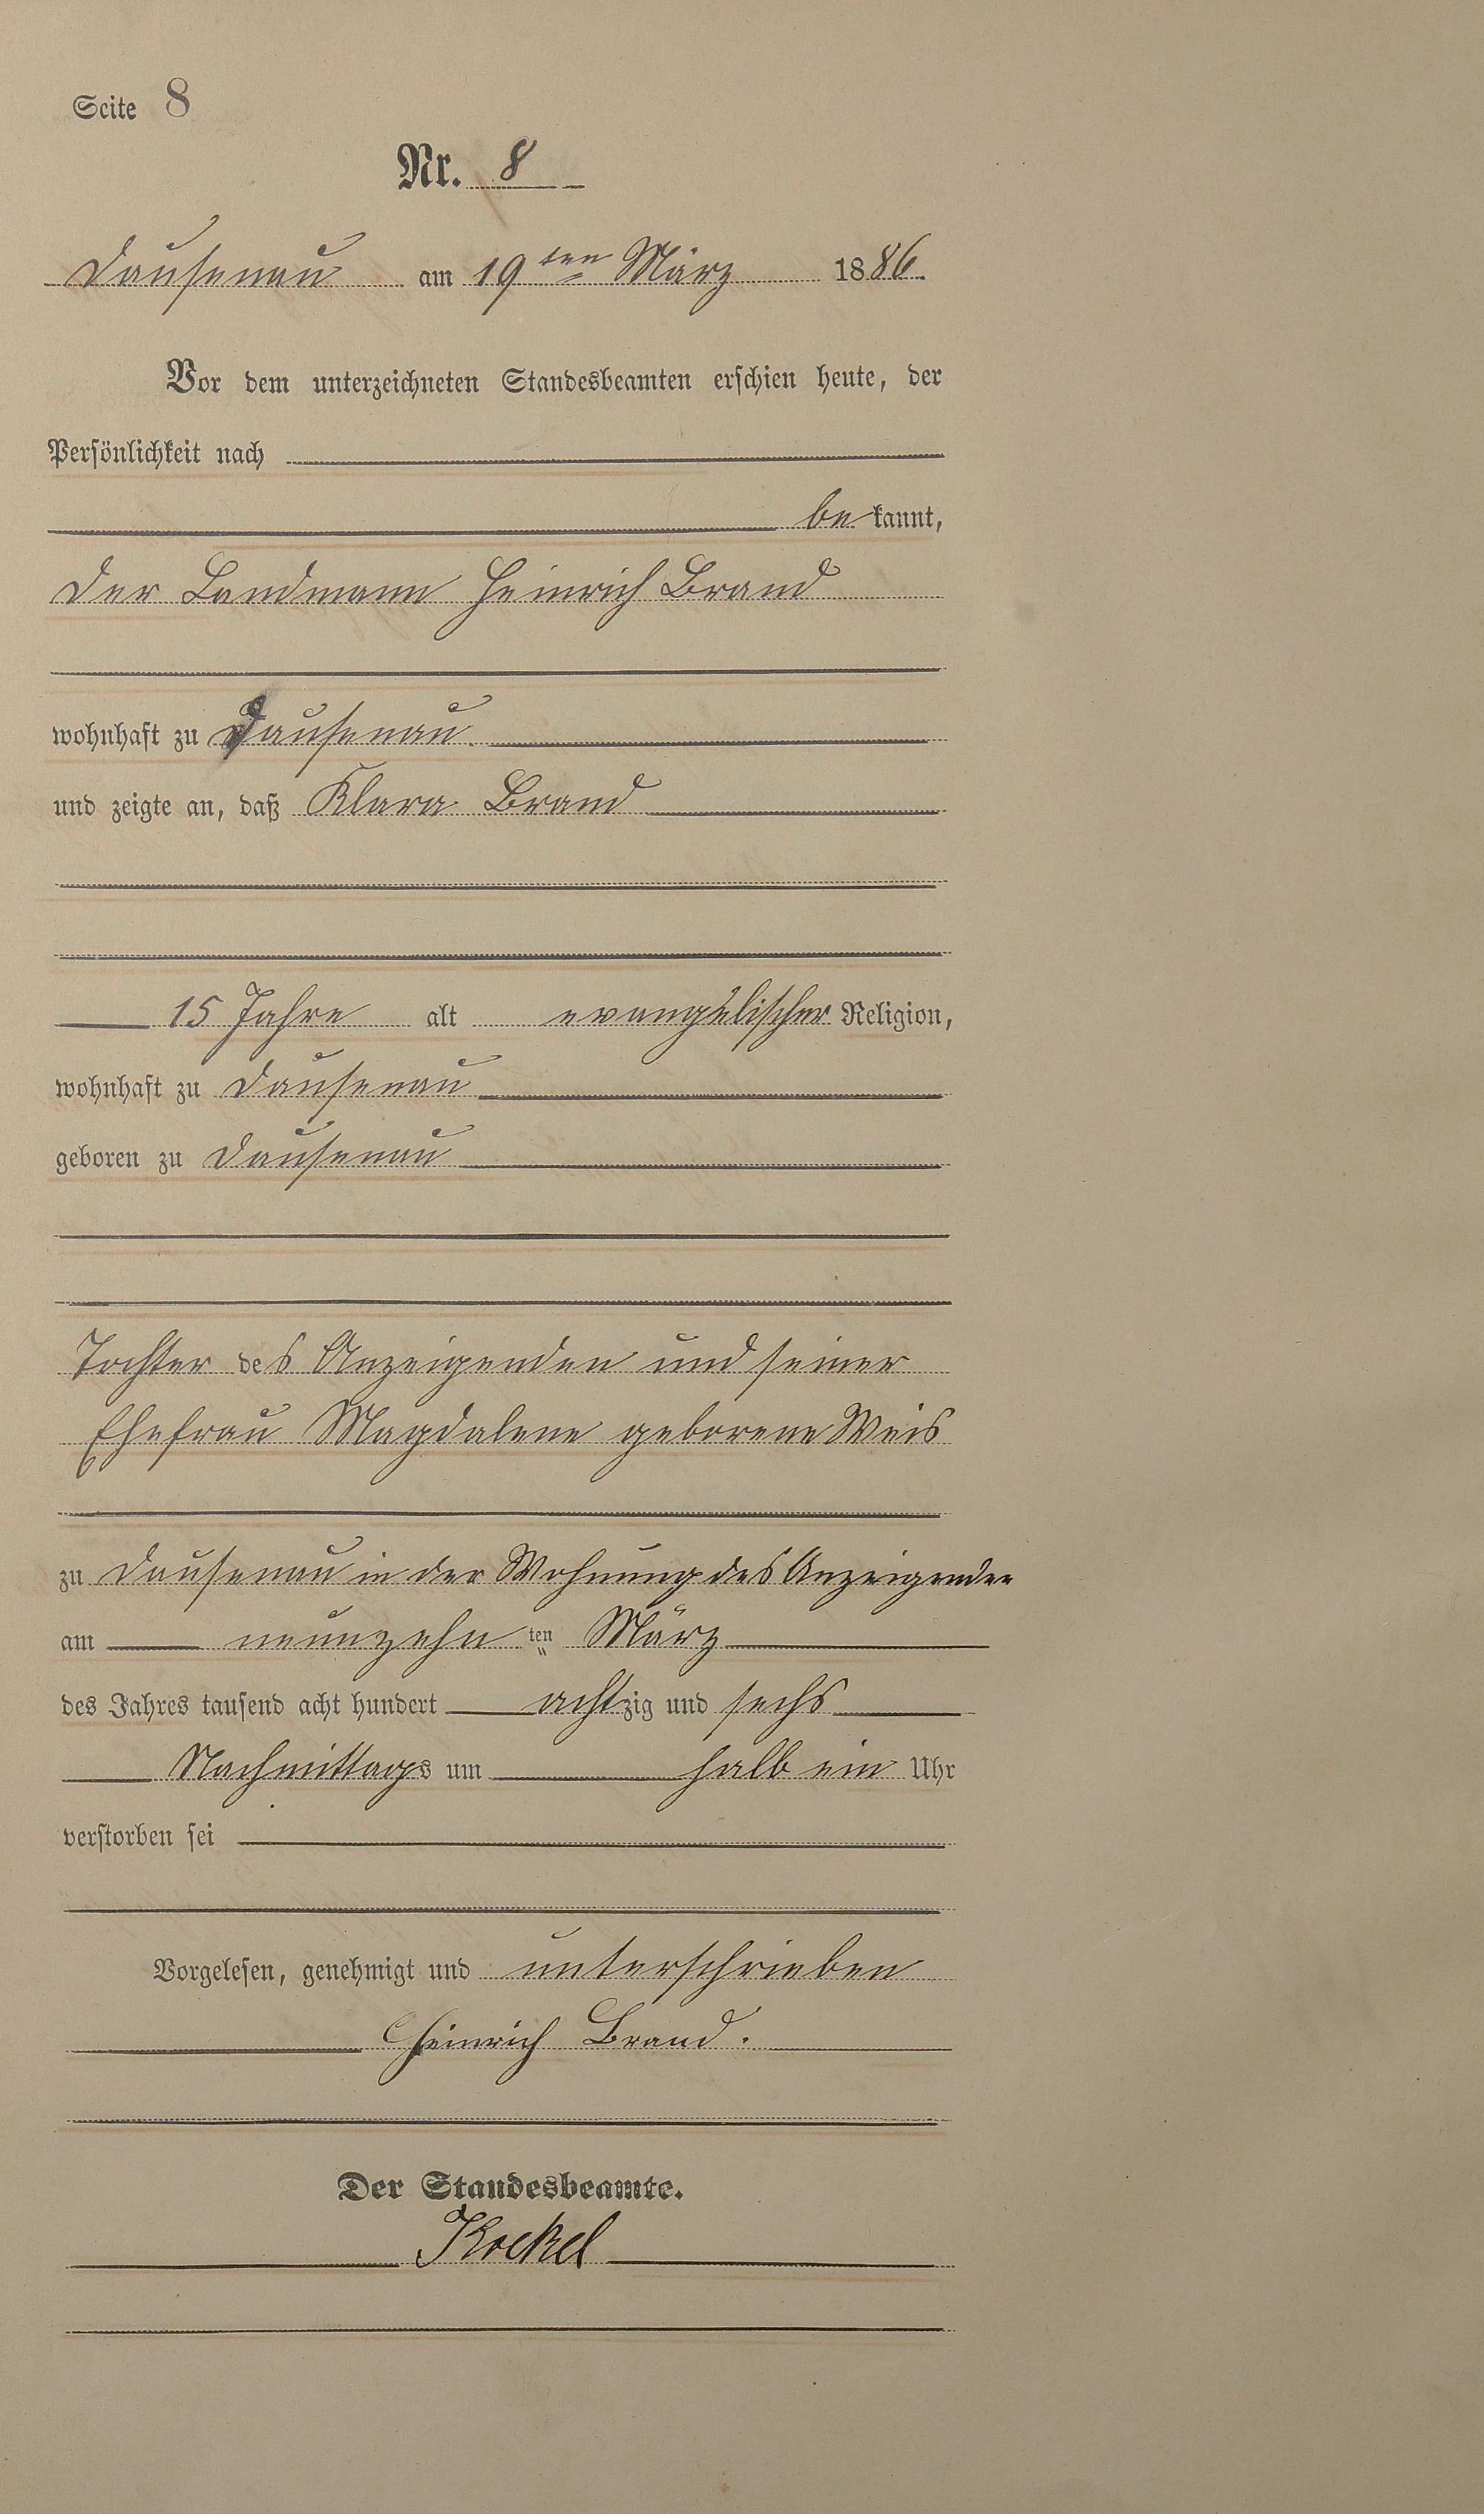 Seite 8
Nr. 8
Dausenau am 19ten März 1886.
Vor dem unterzeichneten Standesbeamten erschien heute, der
Persönlichkeit nach
bekannt,
der Landmann Heinrich Brand
wohnhaft zu Dausenau
und zeigte an, daß Klara Brand
15 Jahre alt evangelischer Religion,
wohnhaft zu Dausenau
geboren zu Dausenau
Tochter des Anzeigenden und seiner
Ehefrau Magdalene geborene Weis
zu Dausenau in der Wohnung des Anzeigenden
am neunzehnten März
des Jahres tausend acht hundert achtzig und sechs
Nachmittags um halb ein Uhr
verstorben sei
Vorgelesen, genehmigt und unterschrieben
Heinrich Brand.
Der Standesbeamte.
Kockel